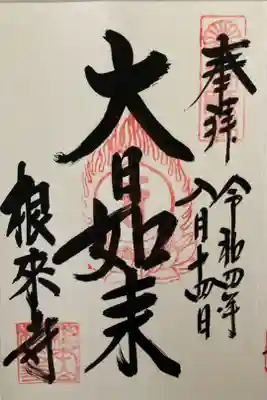 奉拝
令和四年
八月十四日
大日如来
根來寺